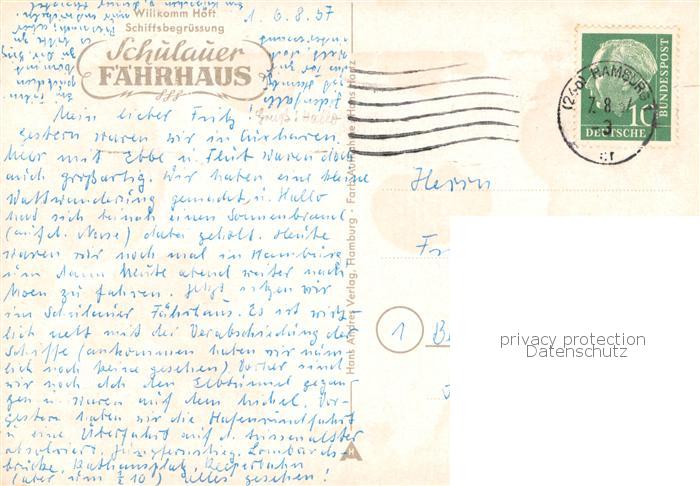 Willkomm Höft
Schiffsbegrüssung
Schulauer
FÄHRHAUS
1. 6.8.57
Mein lieber Fritz!
Gruß: Hallo
gestern waren wir in Cuxhaven.
Meer mit Ebbe u. Flut waren doch
auch großartig. Wir haben eine kleine
Wattwanderung gemacht, u. Hallo
hat sich beinah einen Sonnenbrand
(auf d. Nase) dabei geholt. Heute
waren wir noch mal in Hamburg
um dann heute abend weiter nach
zu fahren. Jetzt sitzen wir
im Schulauer Fährhaus. Es ist wirk-
lich nett mit der Verabschiedung der
Schiffe (ankommen haben wir näm-
lich noch keine gesehen). Vorher sind
wir noch dch den Elbtunnel gegan-
gen u. waren auf dem Michel. Vor-
gestern haben wir die Hafenrundfahrt
u. eine Überfahrt auf d. Aussenalster
absolviert. Jungfernstieg, Lombards-
brücke, Rathausplatz, Reeperbahn
(aber um ½ 10) alles gesehen!
Hans Andres Verlag, Hamburg - Farb-Aufnahme: Hans Hartz
HA
(24a) HAMBURG
7.8.57
DEUTSCHE
BUNDESPOST
10
Herrn
Fr
1
privacy protection
Datenschutz